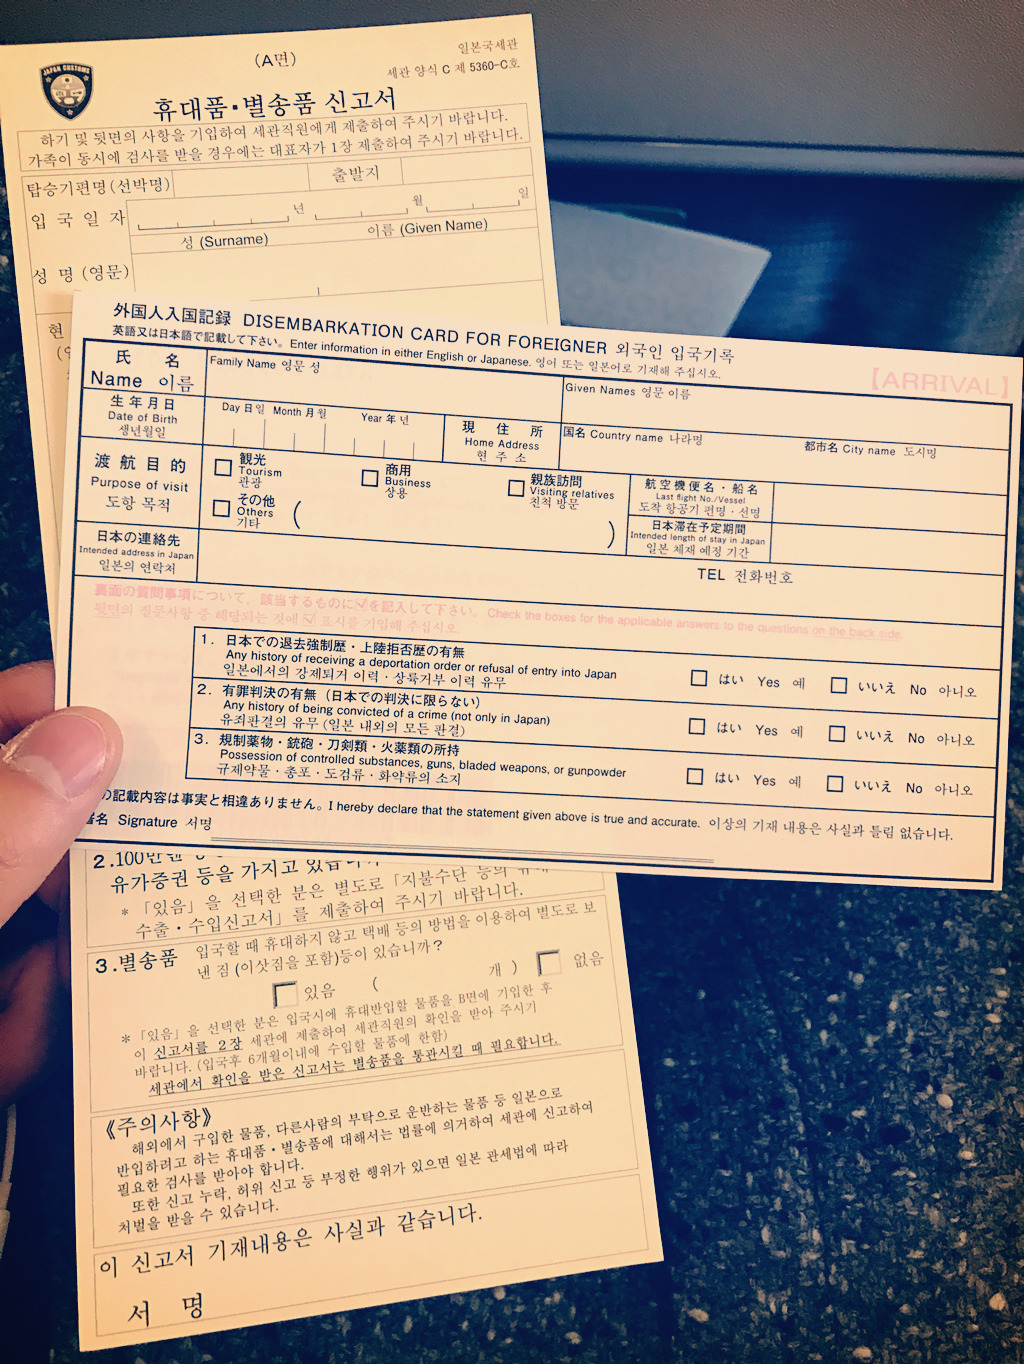 JAPAN CUSTOMS
(A면)
일본국세관
세관 양식 C 제 5360-C호
휴대품・별송품 신고서
하기 및 뒷면의 사항을 기입하여 세관직원에게 제출하여 주시기 바랍니다.
가족이 동시에 검사를 받을 경우에는 대표자가 1장 제출하여 주시기 바랍니다.
탑승기편명(선박명) 출발지
입 국 일 자 년 월 일
성 (Surname) 이름 (Given Name)
성 명 (영문)
현
外国人入国記録 DISEMBARKATION CARD FOR FOREIGNER 외국인 입국기록
英語又は日本語で記載して下さい。Enter information in either English or Japanese. 영어 또는 일본어로 기재해 주십시오.
【ARRIVAL】
氏 名
Name 이름
Family Name 영문 성
Given Names 영문 이름
生 年 月 日
Date of Birth
생년월일
Day 日 일 Month 月 월 Year 年 년
現 住 所
Home Address
현 주 소
国名 Country name 나라명
都市名 City name 도시명
渡 航 目 的
Purpose of visit
도항 목적
観光
Tourism
관광
商用
Business
상용
親族訪問
Visiting relatives
친척 방문
その他
Others
기타
( )
航空機便名・船名
Last flight No./Vessel
도착 항공기 편명・선명
日本滞在予定期間
Intended length of stay in Japan
일본 체재 예정 기간
日本の連絡先
Intended address in Japan
일본의 연락처
TEL 전화번호
裏面の質問事項について、該当するものに☑を記入して下さい。Check the boxes for the applicable answers to the questions on the back side.
뒷면의 질문사항 중 해당되는 것에 ☑ 표시를 기입해 주십시오.
1. 日本での退去強制歴・上陸拒否歴の有無
Any history of receiving a deportation order or refusal of entry into Japan
일본에서의 강제퇴거 이력・상륙거부 이력 유무
はい Yes 예 いいえ No 아니오
2. 有罪判決の有無（日本での判決に限らない）
Any history of being convicted of a crime (not only in Japan)
유죄판결의 유무 (일본 내외의 모든 판결)
はい Yes 예 いいえ No 아니오
3. 規制薬物・銃砲・刀剣類・火薬類の所持
Possession of controlled substances, guns, bladed weapons, or gunpowder
규제약물・총포・도검류・화약류의 소지
はい Yes 예 いいえ No 아니오
の記載内容は事実と相違ありません。I hereby declare that the statement given above is true and accurate. 이상의 기재 내용은 사실과 틀림 없습니다.
署名 Signature 서명
2.100만엔
유가증권 등을 가지고 있습니까
*「있음」을 선택한 분은 별도로「지불수단 등의
수출・수입신고서」를 제출하여 주시기 바랍니다.
3.별송품 입국할 때 휴대하지 않고 택배 등의 방법을 이용하여 별도로 보
낸 짐 (이삿짐을 포함)등이 있습니까?
있음 ( 개 ) 없음
*「있음」을 선택한 분은 입국시에 휴대반입할 물품을 B면에 기입한 후
이 신고서를 2장 세관에 제출하여 세관직원의 확인을 받아 주시기
바랍니다. (입국후 6개월이내에 수입할 물품에 한함)
세관에서 확인을 받은 신고서는 별송품을 통관시킬 때 필요합니다.
《주의사항》
해외에서 구입한 물품, 다른사람의 부탁으로 운반하는 물품 등 일본으로
반입하려고 하는 휴대품・별송품에 대해서는 법률에 의거하여 세관에 신고하여
필요한 검사를 받아야 합니다.
또한 신고 누락, 허위 신고 등 부정한 행위가 있으면 일본 관세법에 따라
처벌을 받을 수 있습니다.
이 신고서 기재내용은 사실과 같습니다.
서 명